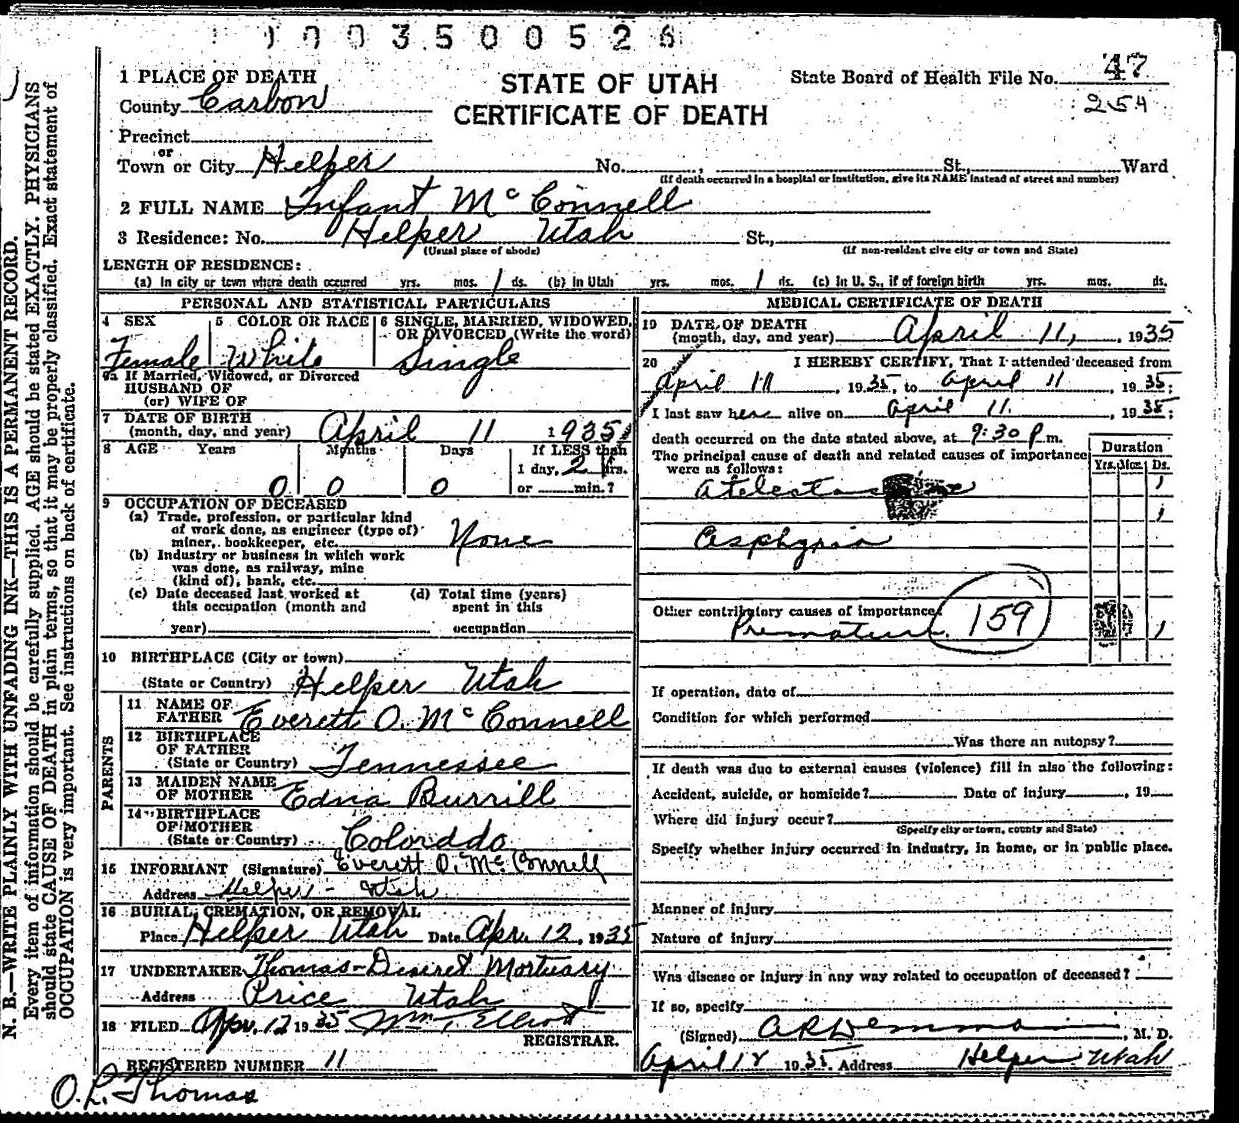 1003500526
STATE OF UTAH
CERTIFICATE OF DEATH
State Board of Health File No. 47
254
1 PLACE OF DEATH
County Carbon
Precinct
or
Town or City Helper No. , St., Ward
(If death occurred in a hospital or institution, give its NAME instead of street and number)
2 FULL NAME Infant McConnell
3 Residence: No. Helper Utah St.,
(Usual place of abode) (If non-resident give city or town and State)
LENGTH OF RESIDENCE:
(a) In city or town where death occurred yrs. mos. 1 ds. (b) In Utah yrs. mos. 1 ds. (c) In U. S., if of foreign birth yrs. mos. ds.
PERSONAL AND STATISTICAL PARTICULARS
4 SEX Female
5 COLOR OR RACE White
6 SINGLE, MARRIED, WIDOWED, OR DIVORCED (Write the word) Single
6a If Married, Widowed, or Divorced
HUSBAND OF
(or) WIFE OF
7 DATE OF BIRTH
(month, day, and year) April 11 1935
8 AGE Years Months Days If LESS than
0 0 0 1 day, 2 hrs.
or min.?
9 OCCUPATION OF DECEASED
(a) Trade, profession, or particular kind
of work done, as engineer (type of)
miner, bookkeeper, etc. None
(b) Industry or business in which work
was done, as railway, mine
(kind of), bank, etc.
(c) Date deceased last worked at
this occupation (month and
year)
(d) Total time (years)
spent in this
occupation
10 BIRTHPLACE (City or town)
(State or Country) Helper Utah
PARENTS
11 NAME OF
FATHER Everett O. McConnell
12 BIRTHPLACE
OF FATHER
(State or Country) Tennessee
13 MAIDEN NAME
OF MOTHER Edna Burrill
14 BIRTHPLACE
OF MOTHER
(State or Country) Colorado
15 INFORMANT (Signature) Everett O. McConnell
Address Helper - Utah
16 BURIAL, CREMATION, OR REMOVAL
Place Helper Utah Date Apr. 12, 1935
17 UNDERTAKER Thomas-Deseret Mortuary
Address Price Utah
18 FILED Apr. 12 1935 Wm. Elliott
REGISTRAR.
REGISTERED NUMBER 11
O. L. Thomas
MEDICAL CERTIFICATE OF DEATH
19 DATE OF DEATH
(month, day, and year) April 11, 1935
20 I HEREBY CERTIFY, That I attended deceased from
April 11, 1935, to April 11 1935;
I last saw her alive on April 11, 1935;
death occurred on the date stated above, at 9:30 P m.
The principal cause of death and related causes of importance
were as follows:
Duration
Yrs. Mos. Ds.
1
1
Asphyxia
Other contributory causes of importance:
Premature 159 1
If operation, date of
Condition for which performed
Was there an autopsy?
If death was due to external causes (violence) fill in also the following:
Accident, suicide, or homicide? Date of injury , 19
Where did injury occur?
(Specify city or town, county and State)
Specify whether injury occurred in industry, in home, or in public place.
Manner of injury
Nature of injury
Was disease or injury in any way related to occupation of deceased?
If so, specify
(Signed) , M. D.
April 12 1935 Address Helper Utah
N. B.—WRITE PLAINLY WITH UNFADING INK—THIS IS A PERMANENT RECORD.
Every item of information should be carefully supplied. AGE should be stated EXACTLY. PHYSICIANS
should state CAUSE OF DEATH in plain terms, so that it may be properly classified. Exact statement of
OCCUPATION is very important. See instructions on back of certificate.